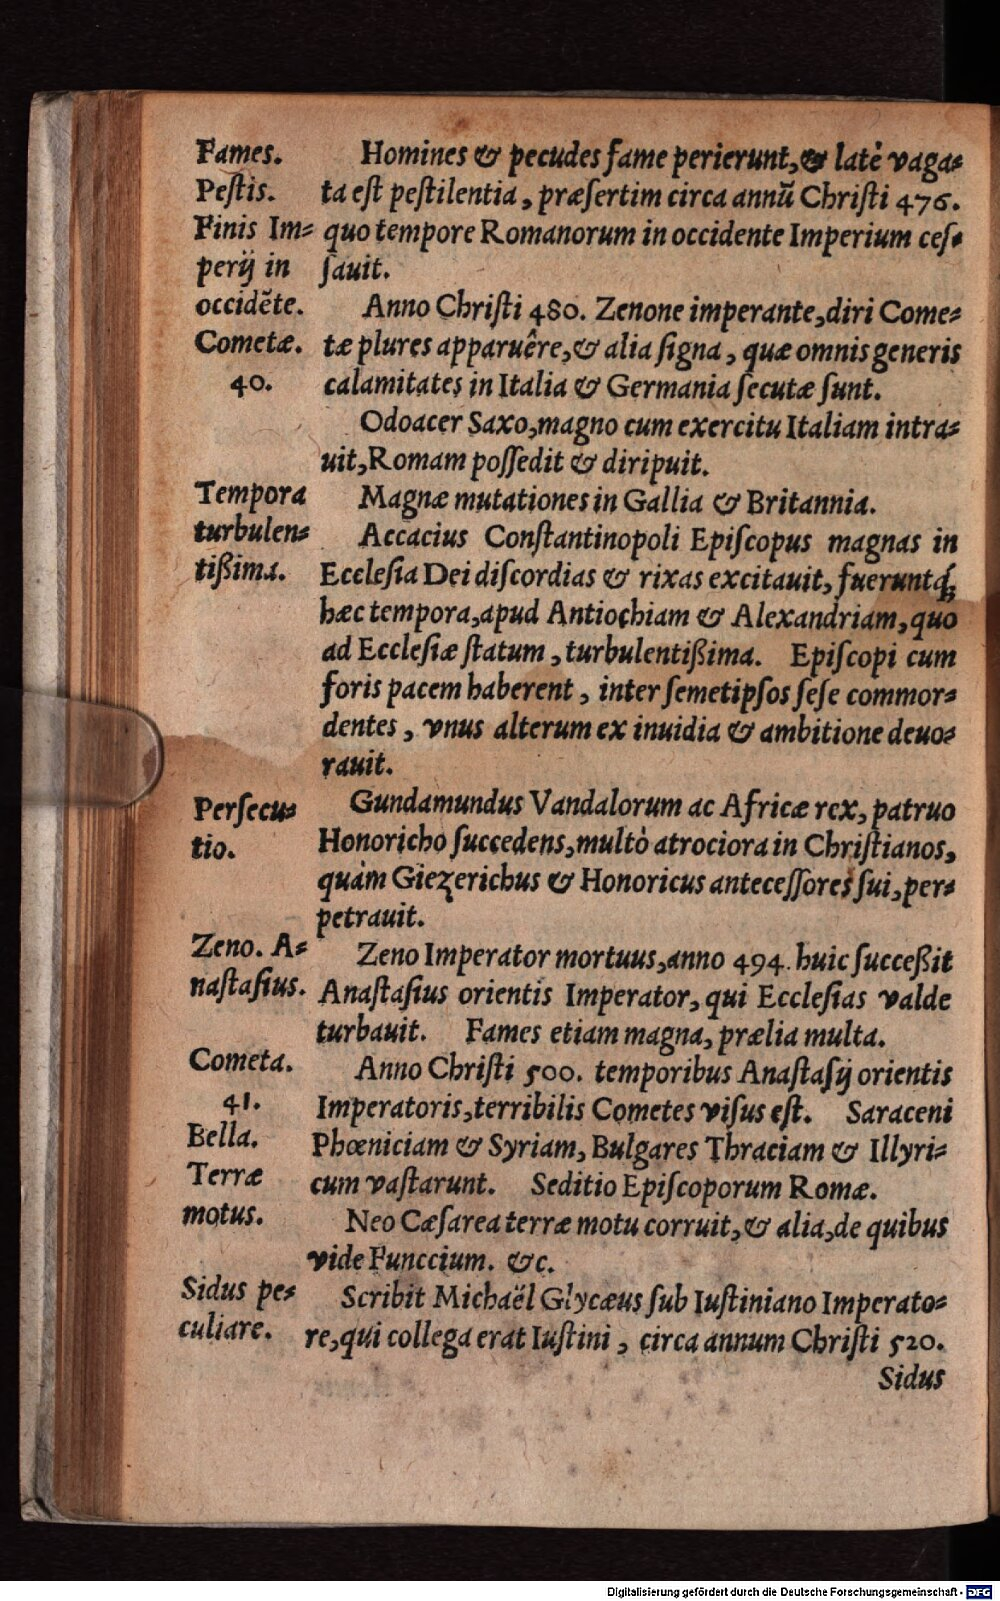 Fames.
Peſtis.
Finis Im⸗
perij in
occidẽte.
Cometæ.
40.
Homines & pecudes fame perierunt, & latè vaga⸗
ta eſt peſtilentia, præſertim circa annũ Chriſti 476.
quo tempore Romanorum in occidente Imperium ceſ⸗
ſauit.
Anno Chriſti 480. Zenone imperante, diri Come⸗
tæ plures apparuêre, & alia ſigna, quæ omnis generis
calamitates in Italia & Germania ſecutæ ſunt.
Odoacer Saxo, magno cum exercitu Italiam intra⸗
uit, Romam poſſedit & diripuit.
Tempora
turbulen⸗
tißima.
Magnæ mutationes in Gallia & Britannia.
Accacius Conſtantinopoli Epiſcopus magnas in
Eccleſia Dei diſcordias & rixas excitauit, fueruntq́;
hæc tempora, apud Antiochiam & Alexandriam, quo
ad Eccleſiæ ſtatum, turbulentißima. Epiſcopi cum
foris pacem haberent, inter ſemetipſos ſeſe commor⸗
dentes, vnus alterum ex inuidia & ambitione deuo⸗
rauit.
Perſecu⸗
tio.
Gundamundus Vandalorum ac Africæ rex, patruo
Honoricho ſuccedens, multò atrociora in Chriſtianos,
quàm Giezerichus & Honoricus anteceſſores ſui, per⸗
petrauit.
Zeno. A⸗
naſtaſius.
Zeno Imperator mortuus, anno 494. huic ſucceßit
Anaſtaſius orientis Imperator, qui Eccleſias valde
turbauit. Fames etiam magna, prælia multa.
Cometa.
41.
Bella.
Terræ
motus.
Anno Chriſti 500. temporibus Anaſtaſij orientis
Imperatoris, terribilis Cometes viſus eſt. Saraceni
Phœniciam & Syriam, Bulgares Thraciam & Illyri⸗
cum vaſtarunt. Seditio Epiſcoporum Romæ.
Neo Cæſarea terræ motu corruit, & alia, de quibus
vide Funccium. &c.
Sidus pe⸗
culiare.
Scribit Michaël Glycæus ſub Iuſtiniano Imperato⸗
re, qui collega erat Iuſtini, circa annum Chriſti 520.
Sidus
Digitalisierung gefördert durch die Deutsche Forschungsgemeinschaft - DFG